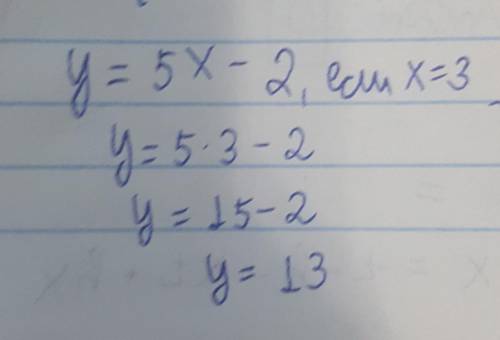 y = 5x - 2, если x=3
y = 5·3 - 2
y = 15 - 2
y = 13